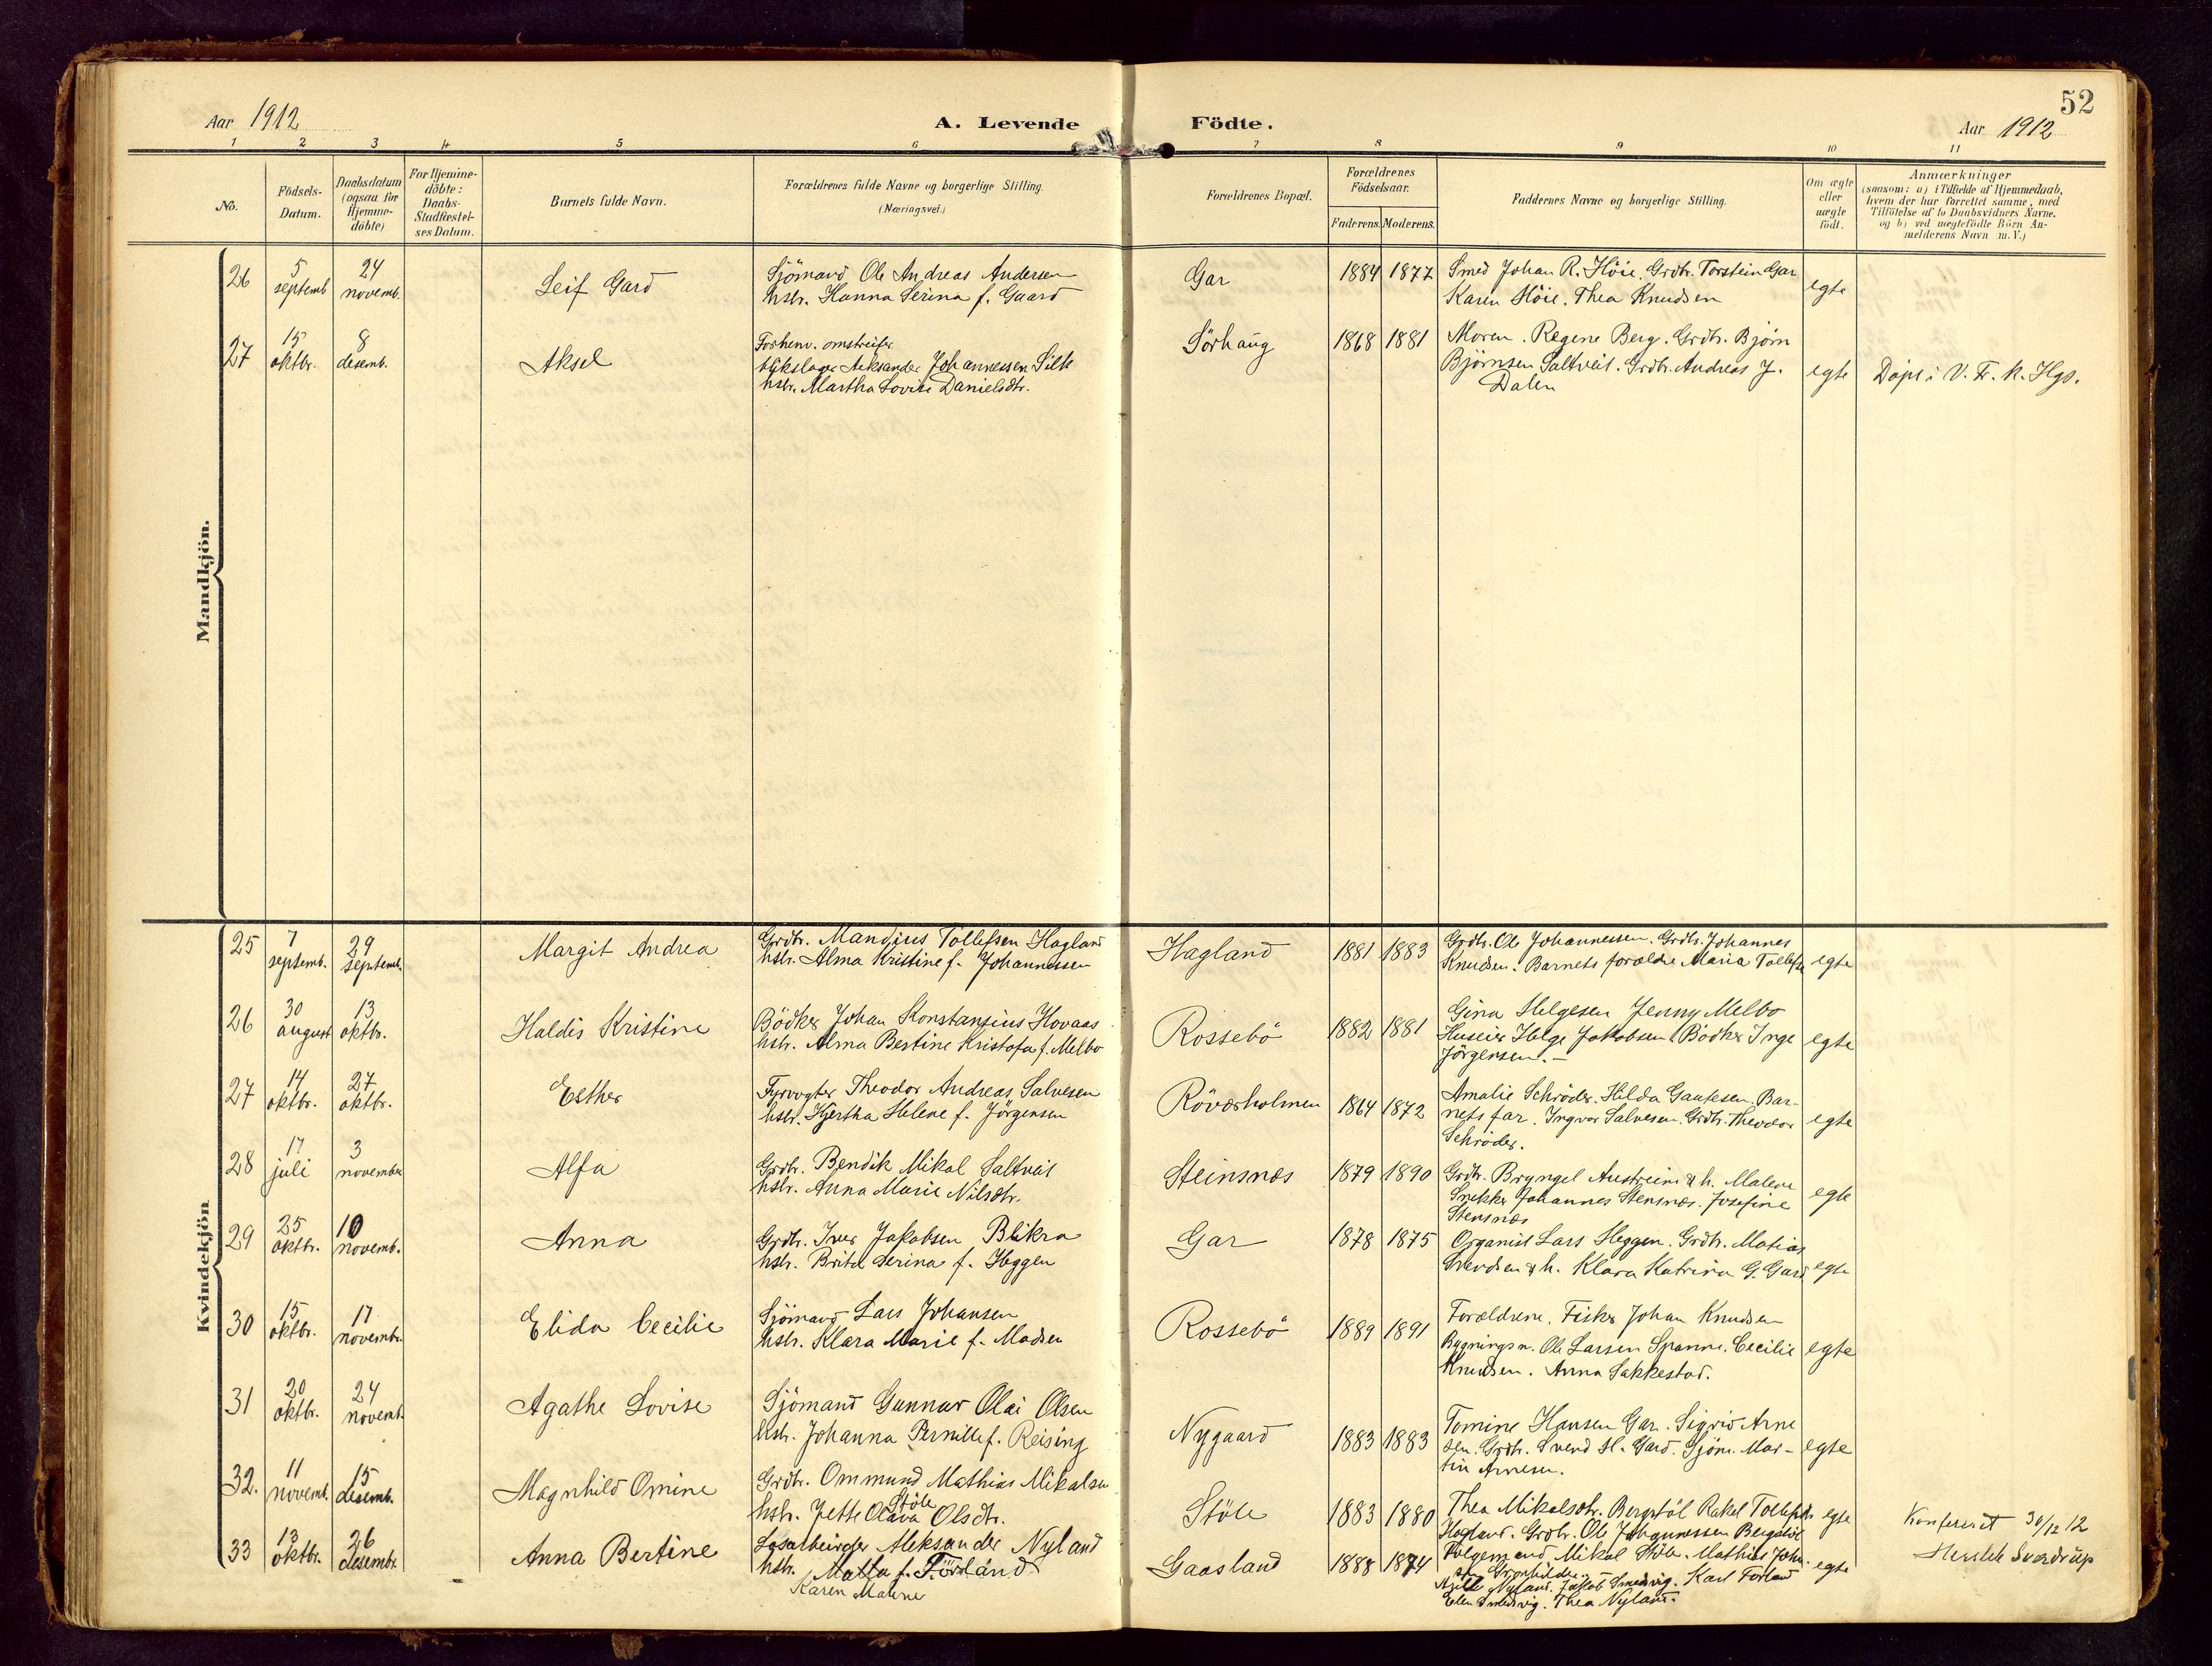 52
Aar 1912
A. Levende Födte.
Aar 1912
1 2 3 4 5 6 7 8 9 10 11
No.
Födsels-
Datum.
Daabsdatum
(ogsaa for
Hjemme-
döbte)
For Hjemme-
döbte:
Daabs-
Stadfæstel-
ses Datum.
Barnets fulde Navn.
Forældrenes fulde Navne og borgerlige Stilling.
(Næringsvei.)
Forældrenes Bopæl.
Forældrenes
Födselsaar.
Faderens. Moderens.
Faddernes Navne og borgerlige Stilling.
Om ægte
eller
uægte
födt.
Anmærkninger
(saasom: a) i Tilfælde af Hjemmedaab,
hvem der har forrettet samme, med
Tilföielse af to Daabsvidners Navne,
og b) ved uægtefödte Börn An-
melderens Navn m. V.)
Mandkjön.
26
5
septemb
24
novemb.
Leif Gard
Sjömand Ole Andreas Andersen
hstr. Hanna Serina f. Gaard
Gar
1884 1877
Smed Johan R. Höie. Grdbr. Torstein Gar
Karen Höie. Thea Knudsen
egte
27
15
oktbr.
8
desemb.
Aksel
Forhenv. omstreifer
blikslager Aleksander Johannessen Silk
hstr. Martha Lovise Danielsdtr.
Sörhaug
1868 1881
Moren. Regene Berg. Grdbr. Björn
Björnsen Saltveit. Grdbr. Andreas J.
Dalen
egte
Döpt i V. Fr. k. Hgs.
Kvindekjön
25
7
septemb.
29
septemb.
Margit Andrea
Grdbr. Mandius Tollefsen Hagland
hstr. Alma Kristine f. Johannessen
Hagland
1881 1883
Grdbr. Ole Johannessen. Grdbr. Johannes
Knudsen. Barnets forældre Maria Tollefsen
egte
26
30
august
13
oktbr.
Haldis Kristine
Bödker Johan Konstansius Hovaas
hstr. Alma Bertine Kristofa f. Melbo
Rossebö
1882 1881
Gina Helgesen Jenny Melbo
Huseier Helge Jakobsen Bödker Inge
Jörgensen.-
egte
27
14
oktbr.
27
oktbr.
Esther
Fyrvogter Theodor Andreas Salvesen
hstr. Hertha Helene f. Jörgensen
Röværholmen
1864 1872
Amalie Schröder. Hilda Gautesen. Bar-
nets far. Ingvar Salvesen. Grdbr. Theodor
Schröder.
egte
28
17
juli
3
november
Alfa
Grdbr. Bendik Mikal Saltveit
hstr. Anna Marie Nilsdtr.
Steinsnes
1879 1890
Grdbr. Bryngel Austreim & h. Malene
Snekker Johannes Stensnæs. Josefine
Stensnæs
egte
29
25
oktbr.
10
novemb.
Anna
Grdbr. Iver Jakobsen Blikra
hstr. Britel Serina f. Heggen
Gar
1878 1875
Organist Lars Heggen. Grdbr. Matias
Svendsen & h. Klara Katrina G. Gard
egte
30
15
oktbr.
17
novembr.
Elida Cecilie
Sjömand Lars Johansen
hstr. Klara Marie f. Madsen
Rossebö
1889 1891
Forældrene. Fisker Johan Knudsen
Bygningsm. Ole Larsen Spanne. Cecilie
Knudsen. Anna Sakkestad.
egte
31
20
oktbr.
24
novemb.
Agathe Lovise
Sjömand Gunnar Olai Olsen
hstr. Johanna Pernille f. Reising
Nygaard
1883 1883
Tomine Hansen Gar. Sigrid Arne
sen. Grdbr. Svend H. Gard. Sjöm. Mar-
tin Arnesen.
egte
32.
11
novemb.
15
desemb.
Magnhild Omine
Grdbr. Ommund Mathias Mikalsen
Stöle
hstr. Jette Olava Olsdtr.
Stöle
1883 1880
Thea Mikalsdtr. Bergstöl Rakel Tollefsdtr.
Hagland. Grdbr. Ole Johannessen Bergstöl
Mikal Stöle. Mathias Johan-
egte
Konferert 30/12 12
Sverdrup
33
13
oktbr.
26
desembr.
Anna Bertine
Lösarbeider Aleksander Nyland
hstr. Malla f. Förland
Karen Malene
Gaasland
1888 1874
Nyland. Jakob Smedsvig. Karl Förland
Elen Smedsvig. Thea Nyland.
egte